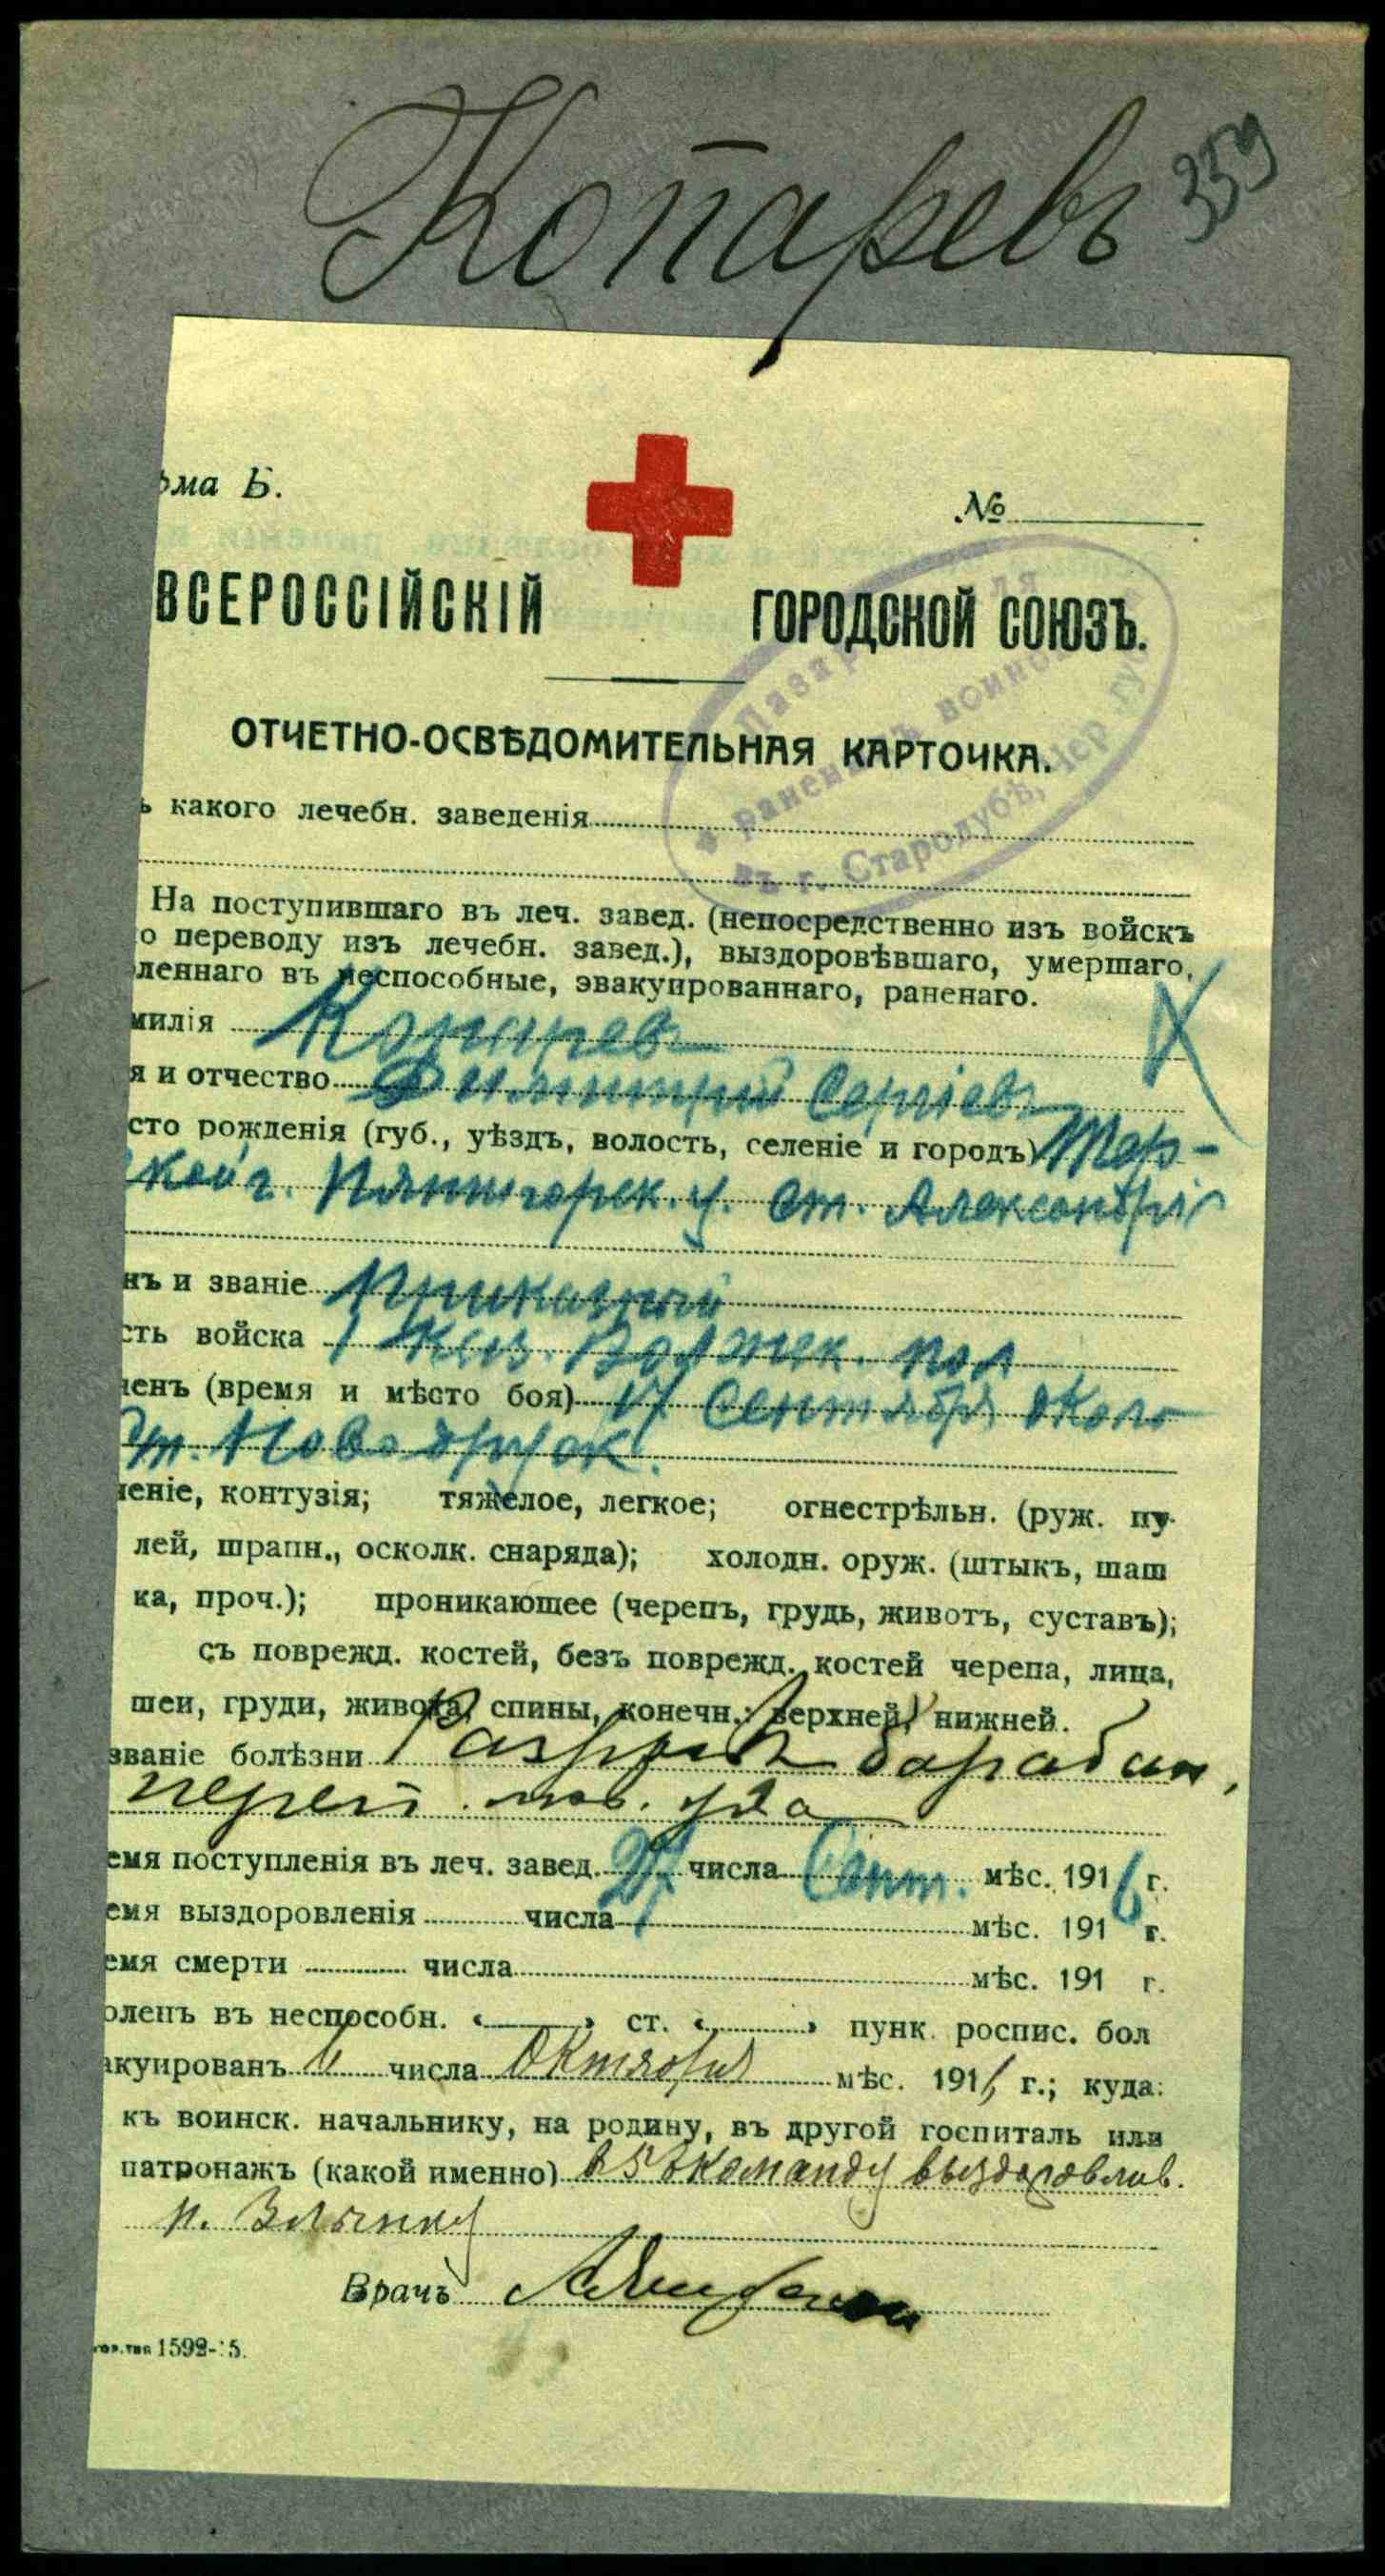 Копаревъ 359
рма Б.
№
ВСЕРОССІЙСКІЙ ГОРОДСКОЙ СОЮЗЪ.
Лазар для
и раненыхъ воиновъ
въ г. Стародубѣ, Чер. губ
ОТЧЕТНО-ОСВѢДОМИТЕЛЬНАЯ КАРТОЧКА.
ъ какого лечебн. заведенія
На поступившаго въ леч. завед. (непосредственно изъ войскъ
о переводу изъ лечебн. завед.), выздоровѣвшаго, умершаго,
вленнаго въ неспособные, эвакуированнаго, раненаго.
милія Копаревъ
я и отчество Димитрій Сергіевъ
сто рожденія (губ., уѣздъ, волость, селеніе и городъ) Тер-
ской г. Пятигорск. у. Ст. Александрів
нъ и званіе Приказный
сть войска 1 Каз. Волжск. пол
ненъ (время и мѣсто боя) 17 Сентября около
ченіе, контузія; тяжелое, легкое; огнестрѣльн. (руж. пу-
лей, шрапн., осколк. снаряда); холодн. оруж. (штыкъ, шаш
ка, проч.); проникающее (черепъ, грудь, животъ, суставъ);
съ поврежд. костей, безъ поврежд. костей черепа, лица,
шеи, груди, живота, спины, конечн.: верхней, нижней.
званіе болѣзни Разрывъ барабан.
переп. лѣв. уха
емя поступленія въ леч. завед. 27 числа Сент. мѣс. 1916 г.
емя выздоровленія числа мѣс. 191 г.
емя смерти числа мѣс. 191 г.
оленъ въ неспособн. « » ст. « » пунк. роспис. бол
акуированъ 6 числа Октября мѣс. 1916 г.; куда:
къ воинск. начальнику, на родину, въ другой госпиталь или
патронажъ (какой именно) в 5 команду выздоровлив.
п. Злынку
Врачъ
гор. тип 1592-15.